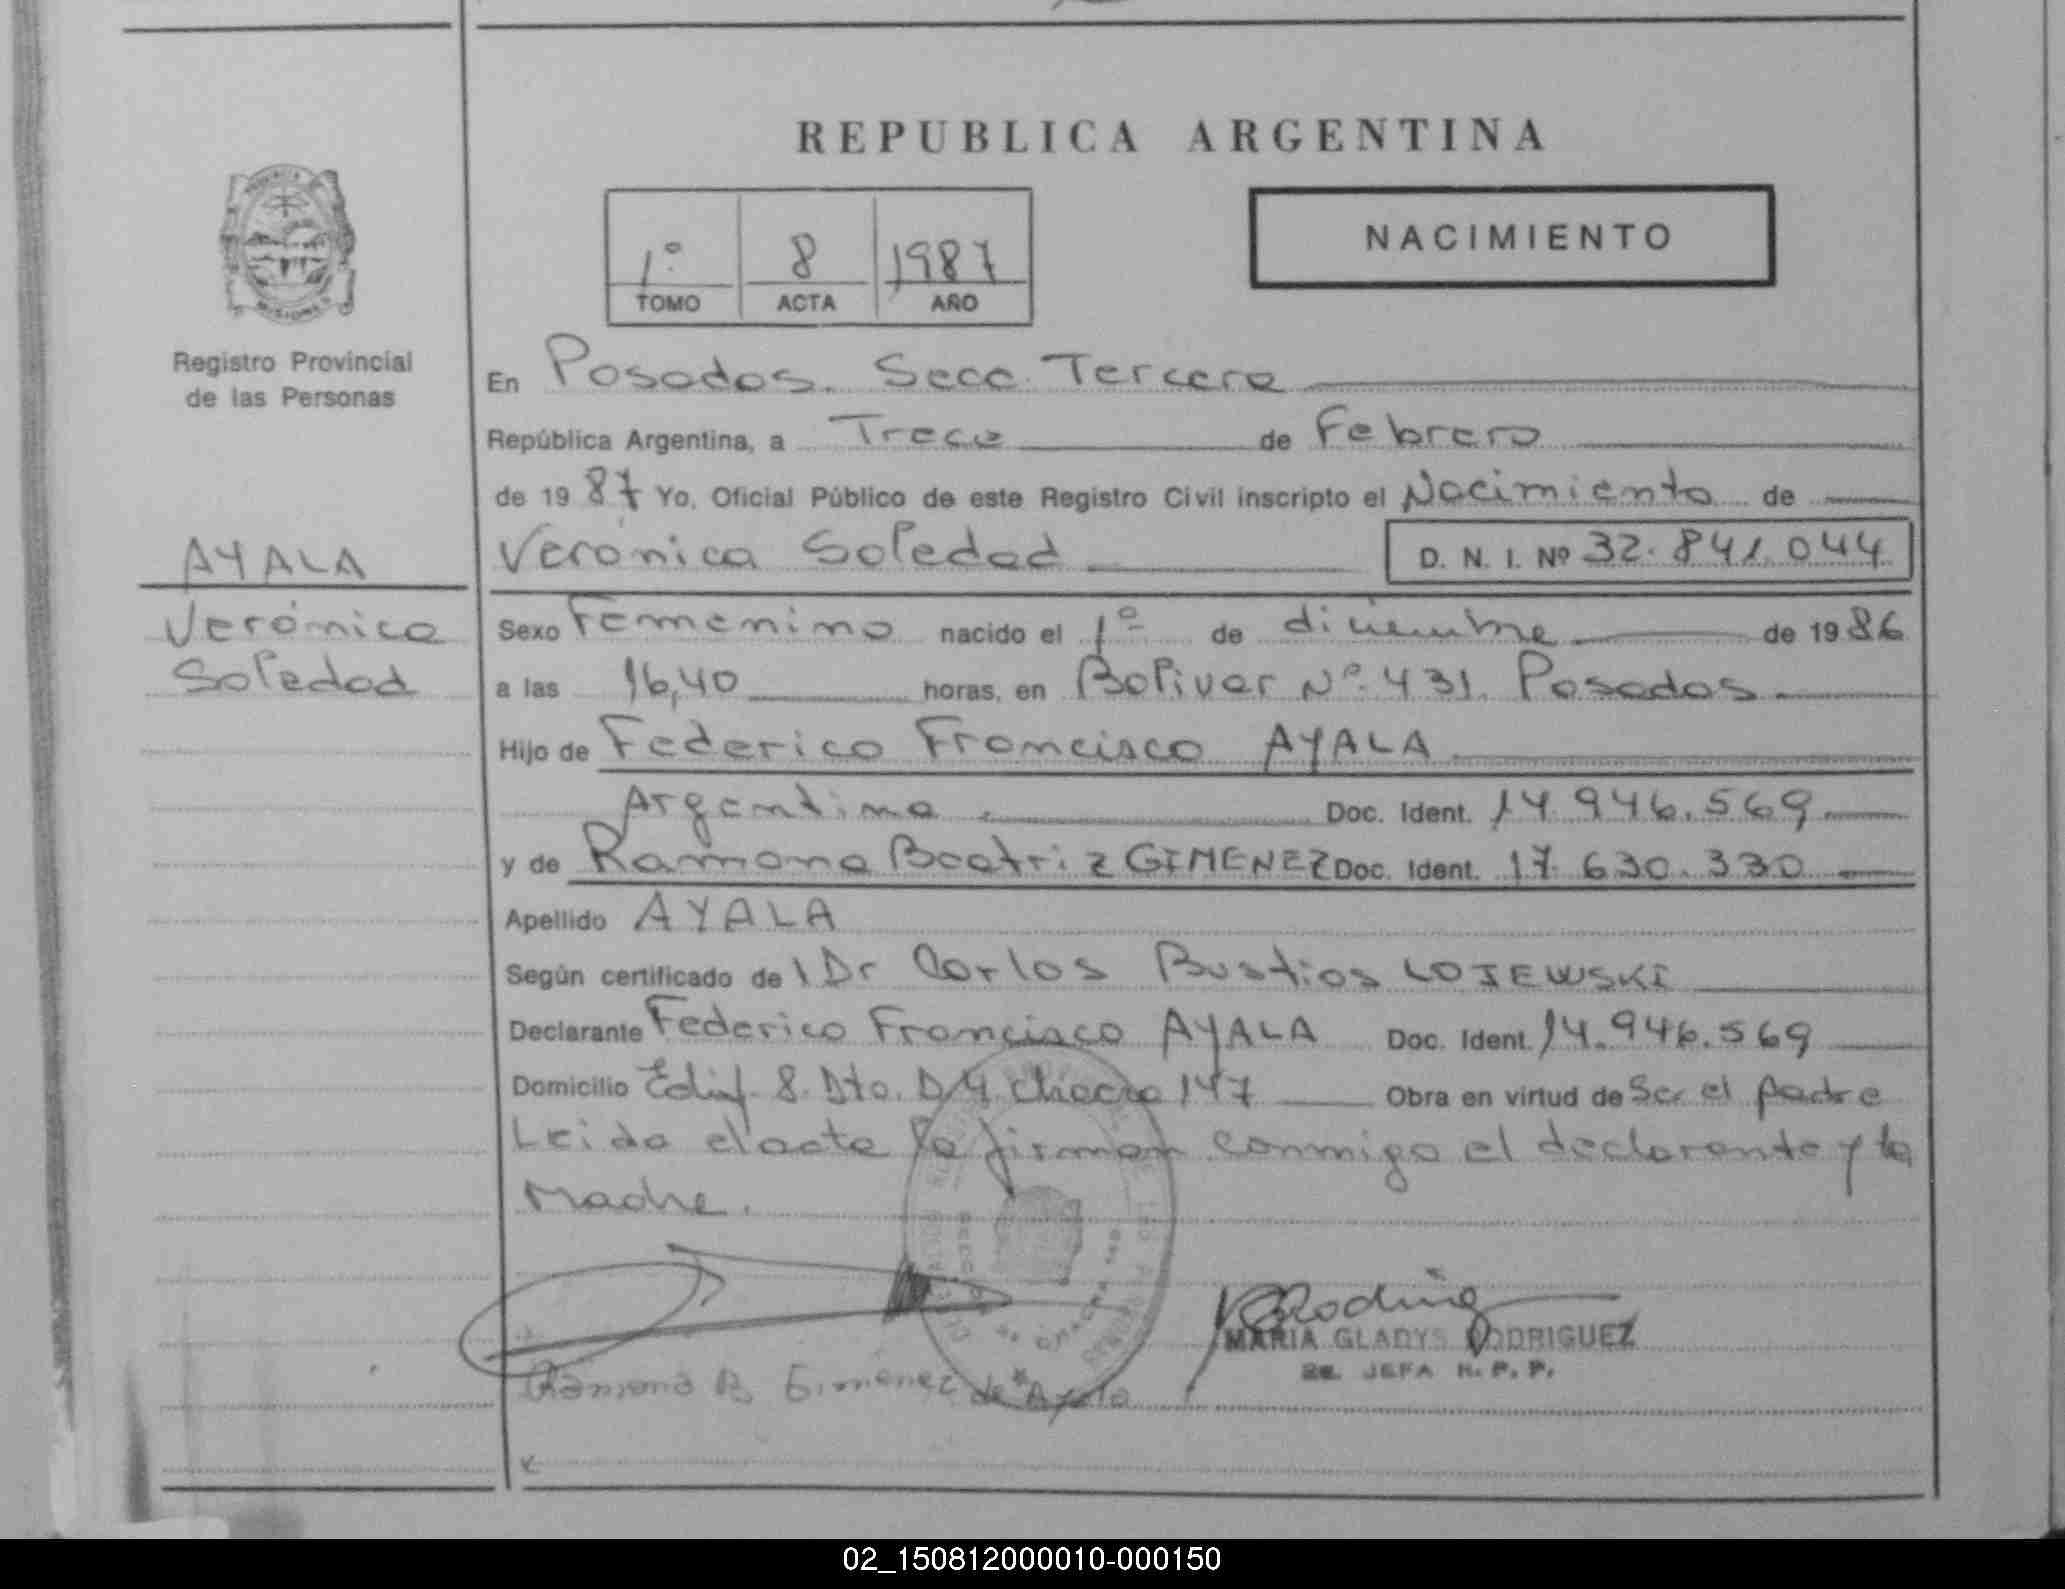 REPUBLICA ARGENTINA
NACIMIENTO
1º 8 1987
TOMO ACTA AÑO
Registro Provincial
de las Personas
En Posadas. Secc. Tercera
República Argentina, a Trece de Febrero
de 1987 Yo, Oficial Público de este Registro Civil inscripto el Nacimiento de
AYALA
Verónica Soledad D. N. I. Nº 32.841.044
Verónica
Soledad
Sexo Femenino nacido el 1º de diciembre de 1986
a las 16,40 horas, en Bolivar Nº 431. Posadas.
Hijo de Federico Francisco AYALA
Argentina. Doc. Ident. 14.946.569
y de Ramona Beatriz GIMENEZ Doc. Ident. 17.630.330
Apellido AYALA
Según certificado de l Dr Carlos Bustios LOJEWSKI
Declarante Federico Francisco AYALA Doc. Ident. 14.946.569
Domicilio Edif. 8. Dto. D/4 Chacra 147 Obra en virtud de Ser el padre
Leida el acta la firman conmigo el declarante y la
Madre.
MARIA GLADYS RODRIGUEZ
2a. JEFA R. P. P.
Ramona B Gimenez de Ayala
02_150812000010-000150